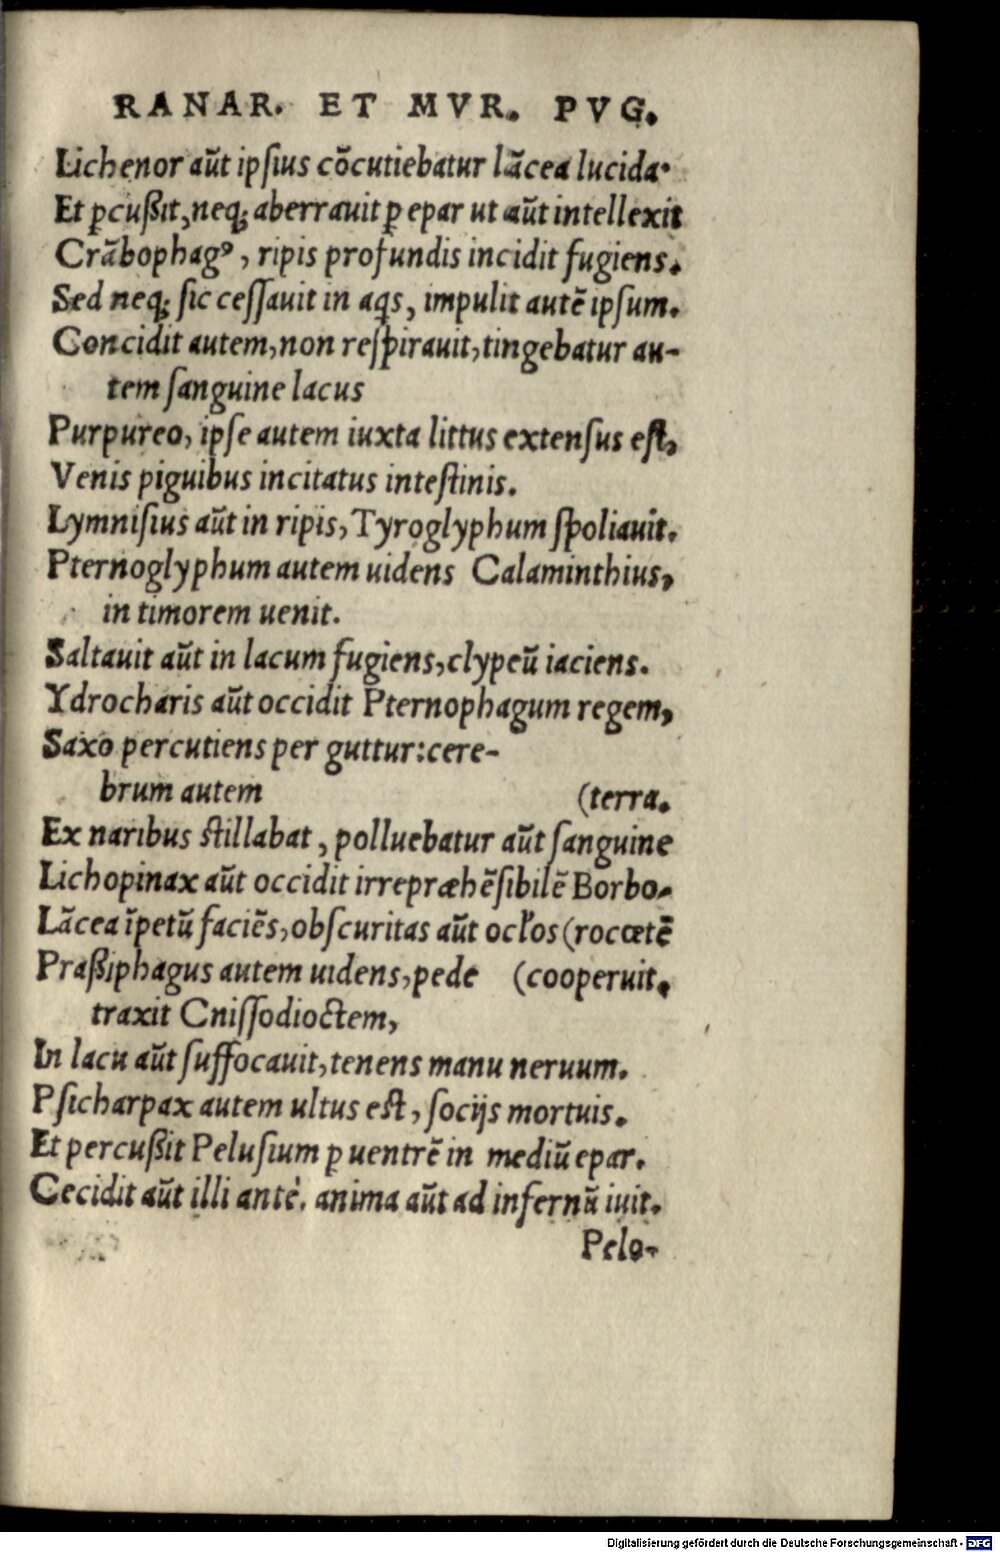 RANAR. ET MVR. PVG.
Lichenor aũt ipſius cõcutiebatur lãcea lucida.
Et ꝑcußit, neq; aberrauit ꝑ epar ut aũt intellexit
Crãbophagꝰ, ripis profundis incidit fugiens.
Sed neq; ſic ceſſauit in aqs, impulit autẽ ipſum.
Concidit autem, non reſpirauit, tingebatur au-
tem ſanguine lacus
Purpureo, ipſe autem iuxta littus extenſus eſt,
Venis piguibus incitatus inteſtinis.
Lymniſius aũt in ripis, Tyroglyphum ſpoliauit.
Pternoglyphum autem uidens Calaminthius,
in timorem uenit.
Saltauit aũt in lacum fugiens, clypeũ iaciens.
Ydrocharis aũt occidit Pternophagum regem,
Saxo percutiens per guttur: cere-
brum autem (terra.
Ex naribus ſtillabat, polluebatur aũt ſanguine
Lichopinax aũt occidit irrepræhẽſibilẽ Borbo-
Lãcea ĩpetũ faciẽs, obſcuritas aũt ocľos (rocœtẽ
Praßiphagus autem uidens, pede (cooperuit.
traxit Cniſſodioctem,
In lacu aũt ſuffocauit, tenens manu neruum.
Pſicharpax autem ultus eſt, ſocijs mortuis.
Et percußit Peluſium ꝑ uentrẽ in mediũ epar.
Cecidit aũt illi ante. anima aũt ad infernũ iuit.
Pelo-
Digitalisierung gefördert durch die Deutsche Forschungsgemeinschaft - DFG